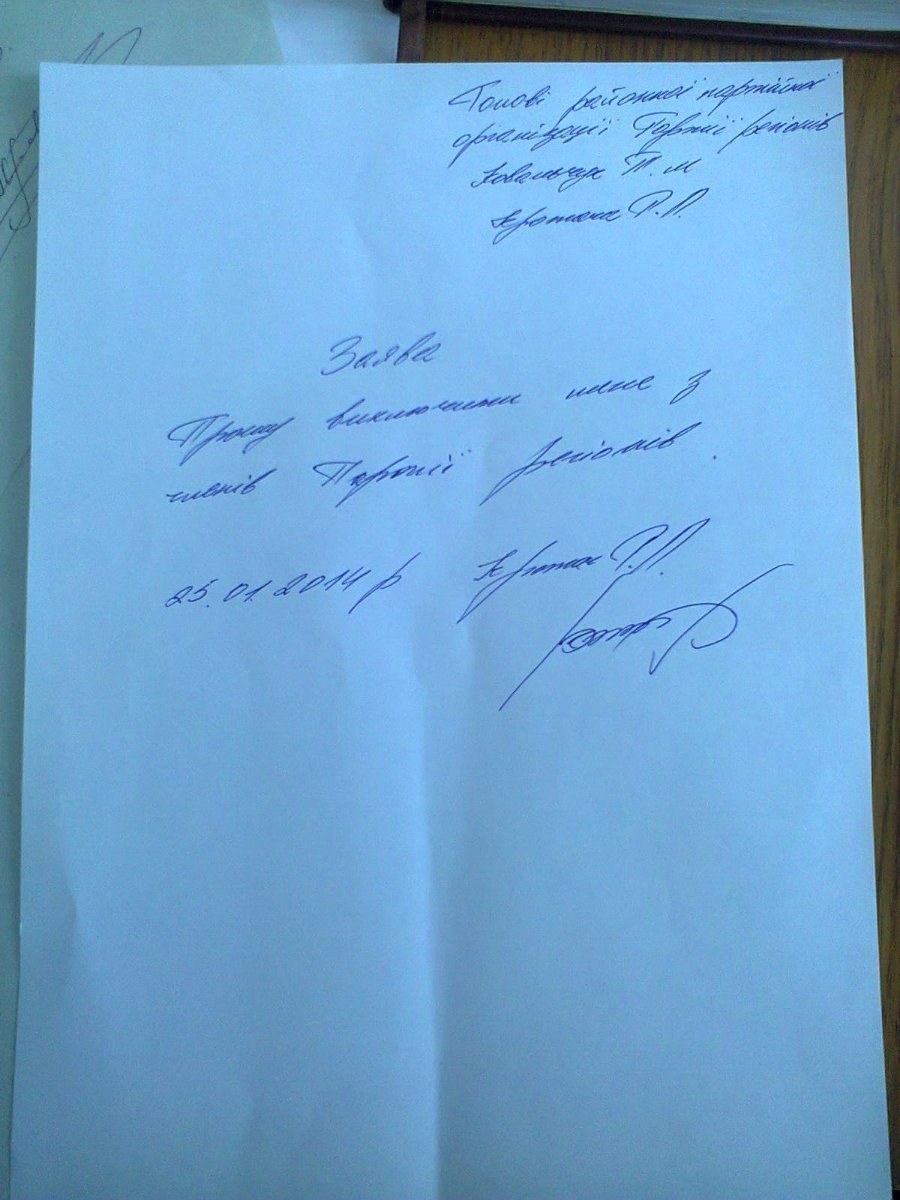 Голові районної партійної
організації Партії регіонів
Ковальчук П. М
Кротюка Р. П.
Заява
Прошу виключити мене з
членів Партії регіонів.
25.01.2014 р
Р. П.